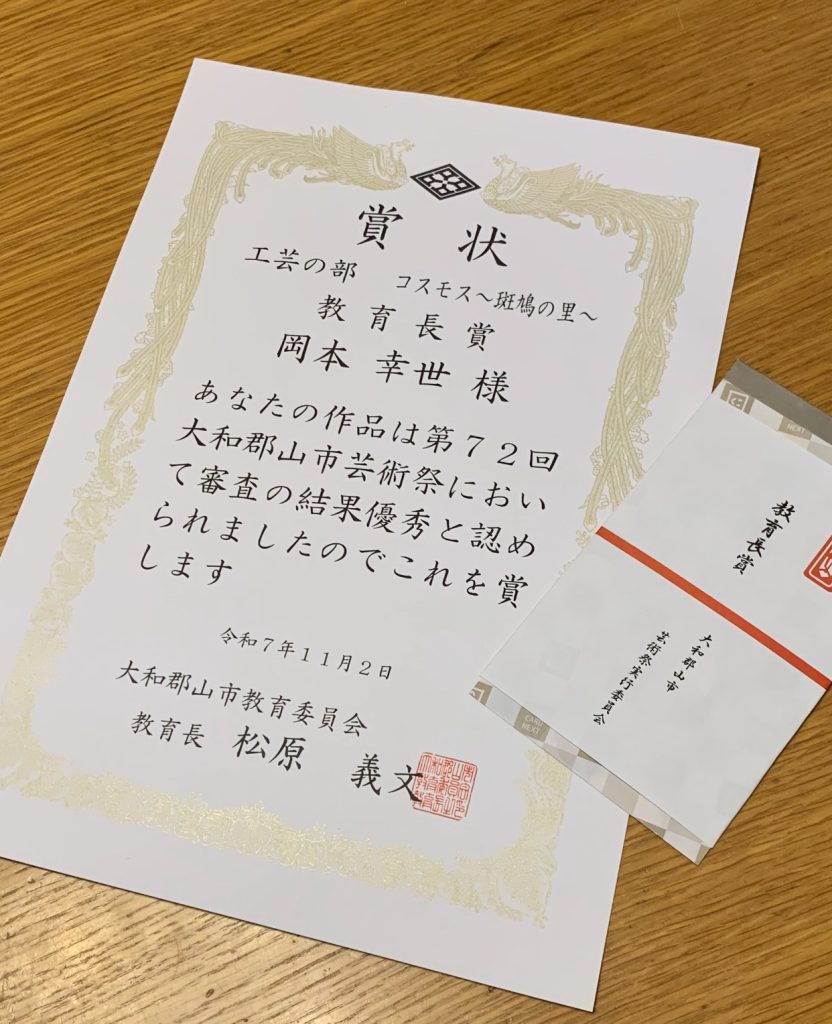 賞状
工芸の部 コスモス～斑鳩の里～
教育長賞
岡本 幸世 様
あなたの作品は第72回
大和郡山市芸術祭におい
て審査の結果優秀と認め
られましたのでこれを賞
します
令和7年11月2日
大和郡山市教育委員会
教育長 松原 義文
NEXT
教育長賞
大和郡山市
芸術祭実行委員会
CARD
NEXT